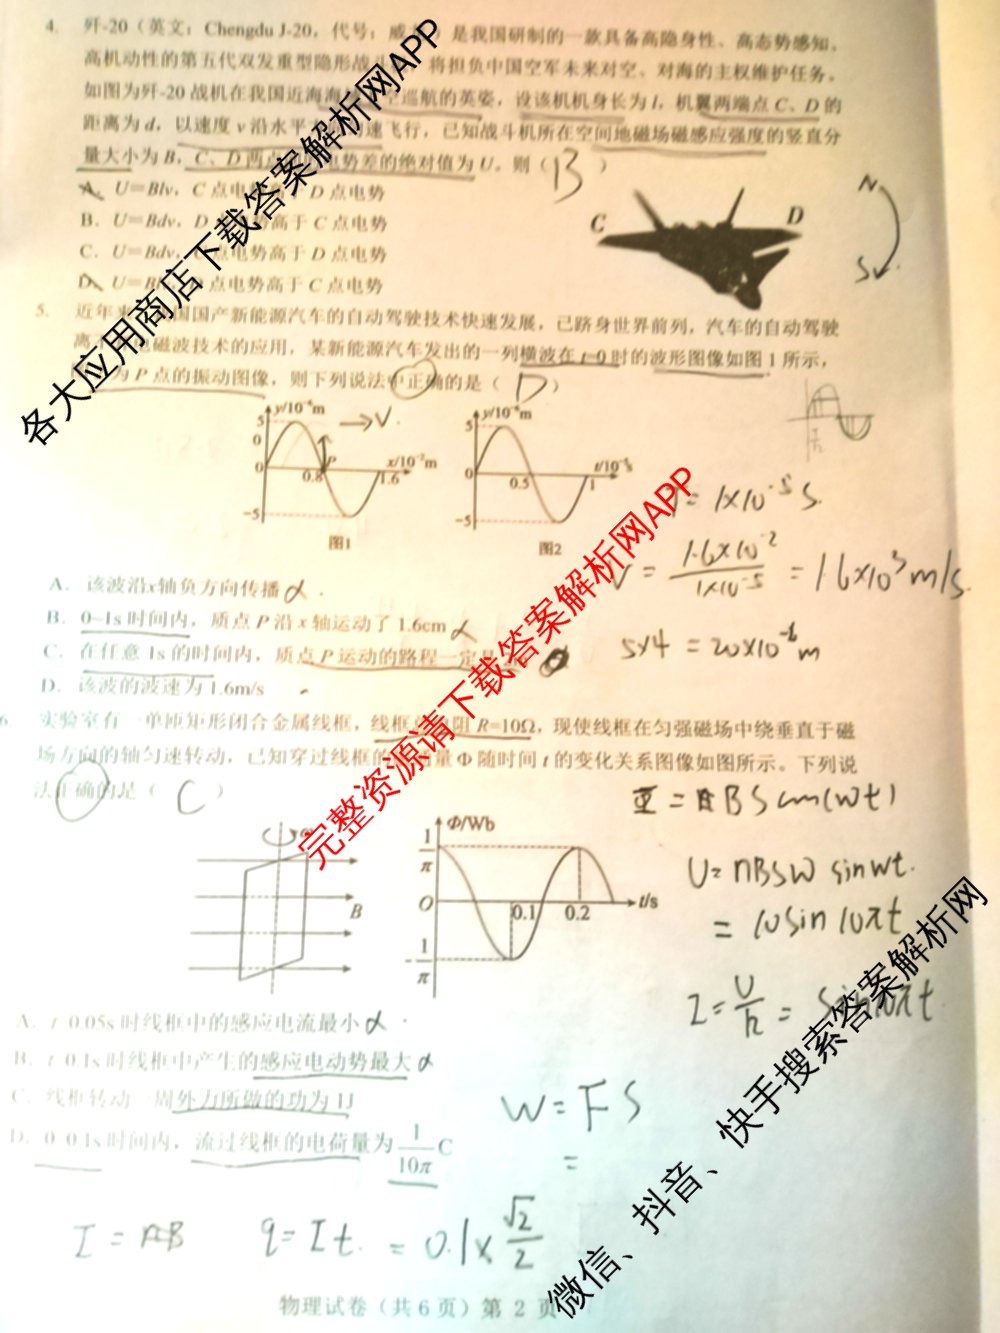 4. 歼-20（英文：Chengdu J-20，代号：威 ）是我国研制的一款具备高隐身性、高态势感知、
高机动性的第五代双发重型隐形战斗 将担负中国空军未来对空、对海的主权维护任务。
如图为歼-20 战机在我国近海海 巡航的英姿，设该机机身长为 l，机翼两端点 C、D 的
距离为 d，以速度 v 沿水平 速飞行，已知战斗机所在空间地磁场磁感应强度的竖直分
量大小为 B，C、D 两点 电势差的绝对值为 U。则（ B ）
A. U=Blv，C 点电势 D 点电势
B. U=Bdv，D 势高于 C 点电势
C. U=Bdv， 点电势高于 D 点电势
D. U= 点电势高于 C 点电势
C D
N
S
5. 近年来 国国产新能源汽车的自动驾驶技术快速发展，已跻身世界前列，汽车的自动驾驶
离 电磁波技术的应用，某新能源汽车发出的一列横波在 t=0 时的波形图像如图 1 所示，
为 P 点的振动图像，则下列说法中正确的是（ D ）
y/10⁻⁶m → V y/10⁻⁶m
5 5
0 P 0.8 1.6 x/10⁻²m 0 0.5 1 t/10⁻⁵s
-5 -5
图1 图2
T= 1×10⁻⁵ s.
V = 1.6×10⁻² / 1×10⁻⁵ = 1.6×10³ m/s.
A. 该波沿x轴负方向传播
B. 0~1s 时间内，质点 P 沿 x 轴运动了 1.6cm
C. 在任意 1s 的时间内，质点 P 运动的路程一定是
5×4 = 20×10⁻⁶ m
D. 该波的波速为 1.6m/s
6 实验室有一单匝矩形闭合金属线框，线框 阻 R=10Ω，现使线框在匀强磁场中绕垂直于磁
场方向的轴匀速转动，已知穿过线框的 量 Φ 随时间 t 的变化关系图像如图所示。下列说
法正确的是（ C ）
B
Φ/Wb
1/π
O 0.1 0.2 t/s
-1/π
U= nBSω sinωt.
= 10sin 10πt
A. t=0.05s 时线框中的感应电流最小
B. t=0.1s 时线框中产生的感应电动势最大
C. 线框转动一周外力所做的功为 1J
D. 0~0.1s 时间内，流过线框的电荷量为 1/10π C
W = FS
=
q= It. = 0.1× √2/2
物理试卷（共 6 页）第 2 页
各大应用商店下载答案解析网APP
完整资源请下载答案解析网APP
微信、抖音、快手搜索答案解析网